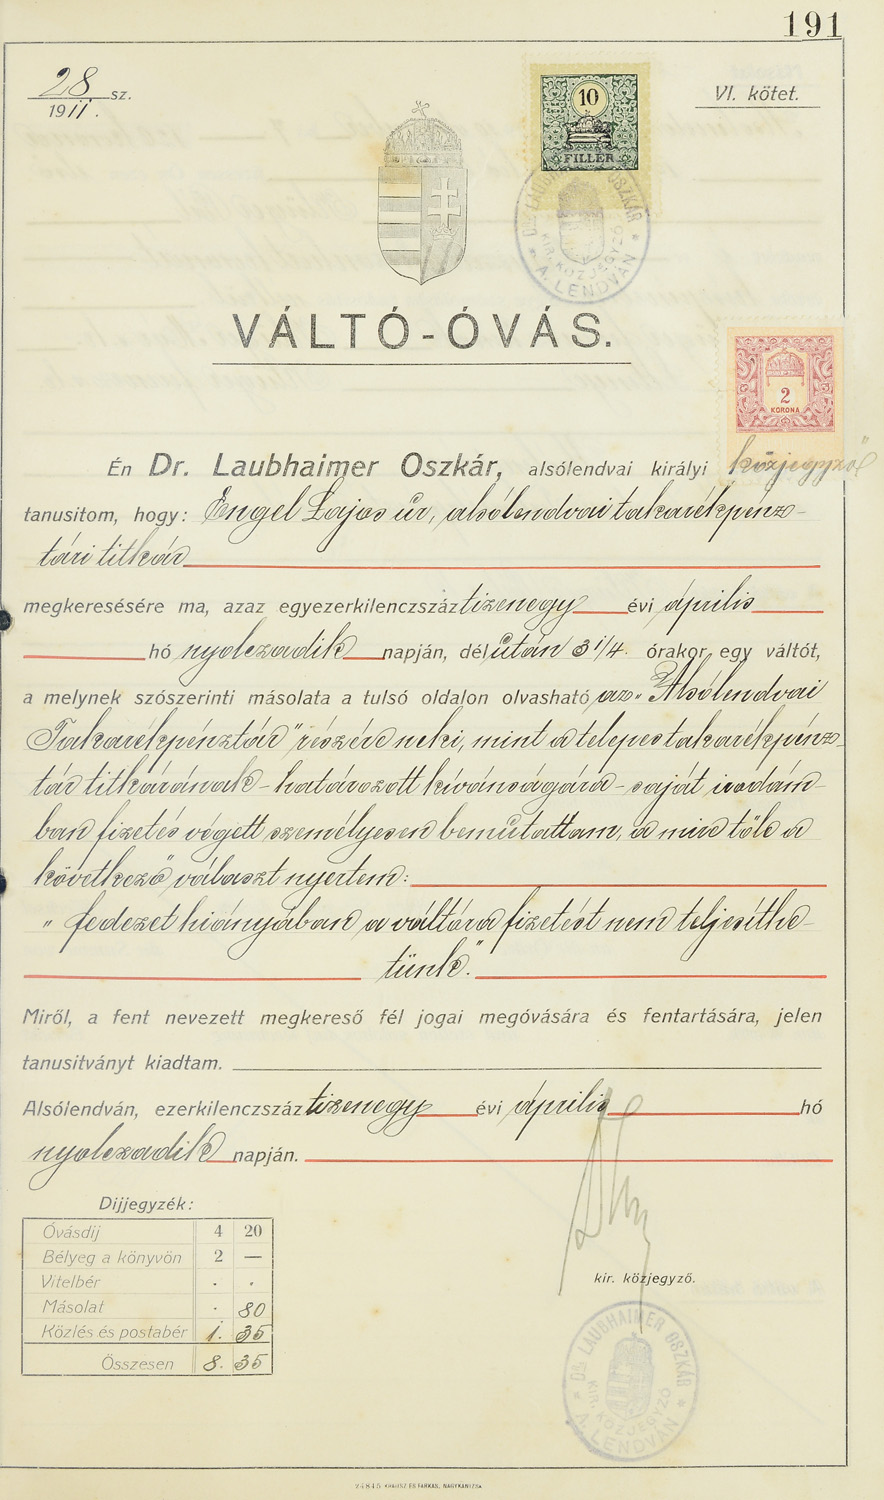 191
28 sz.
1911.
VI. kötet.
10
FILLÉR
DR. LAUBHAIMER OSZKÁR
KIR. KÖZJEGYZŐ
* A. LENDVÁN *
VÁLTÓ-ÓVÁS.
2
KORONA
Én Dr. Laubhaimer Oszkár, alsólendvai királyi közjegyző
tanusitom, hogy: Engel Lajos úr, alsólendvai takarékpénz-
tári titkár
megkeresésére ma, azaz egyezerkilenczszáz tizenegy évi április
hó nyolczadik napján, délután 3 1/4. órakor egy váltót,
a melynek szószerinti másolata a tulsó oldalon olvasható az "Alsólendvai
Takarékpénztár" részére neki, mint a telepes takarékpénz-
tár titkárának - határozott kívánságára - saját irodám-
ban fizetés végett személyesen bemutattam, a mire tőle a
következő választ nyertem:
"fedezet hiányában a váltóra fizetést nem teljesíthe-
tünk."
Miről, a fent nevezett megkereső fél jogai megóvására és fentartására, jelen
tanusitványt kiadtam.
Alsólendván, ezerkilenczszáz tizenegy évi április hó
nyolczadik napján.
Dijjegyzék:
Óvásdij 4 20
Bélyeg a könyvön 2 —
Vitelbér . .
Másolat . 80
Közlés és postabér 1. 35
Összesen 8. 35
kir. közjegyző.
DR. LAUBHAIMER OSZKÁR
KIR. KÖZJEGYZŐ
* A. LENDVÁN *
24845 KRAUSZ ÉS FARKAS, NAGYKANIZSA